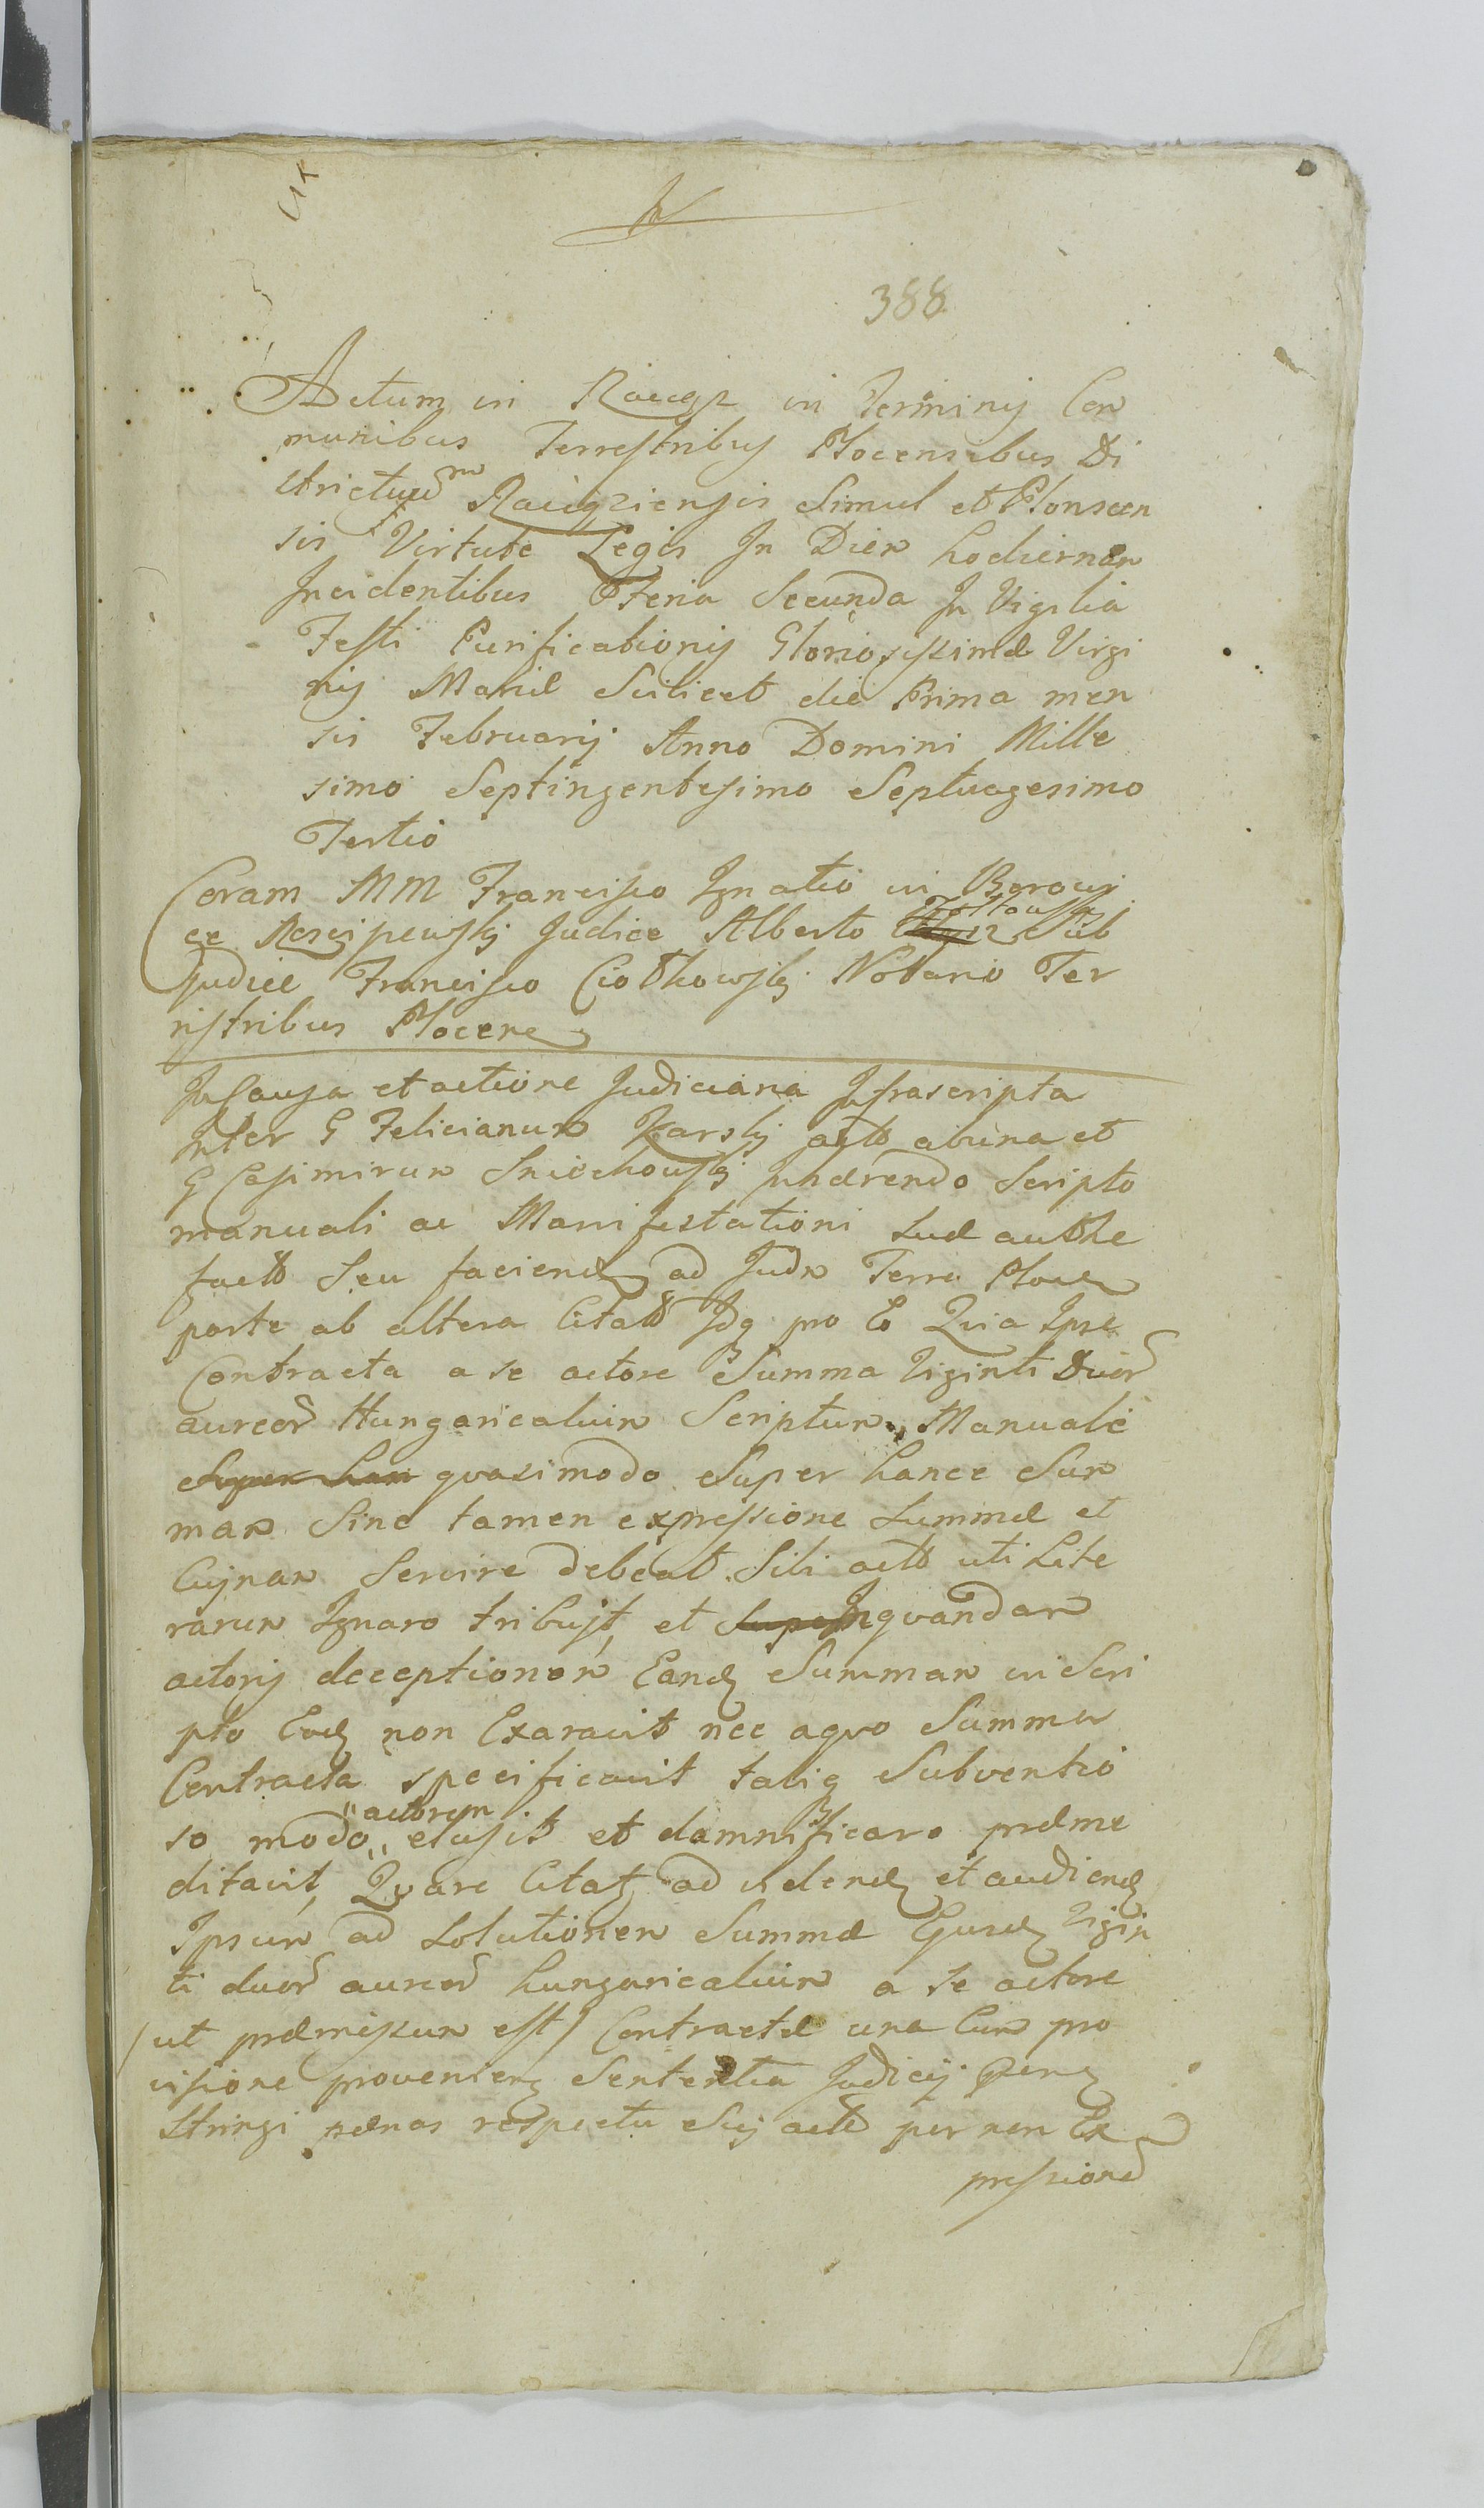 388
Actum in Raciąz in Terminis Com
munibus Terrestribus Plocensibus Di
strictuum Raciąziensis Simul et Plonscen
sis Virtute Legis In Diem hodiernam
Incidentibus Feria Secunda In Vigilia
Festi Purificationis Gloriosissimæ Virgi
nis Mariæ Scilicet die Prima men
sis Februarij Anno Domini Mille
simo Septingentesimo Septuagesimo
Tertio
Coram MM Francisco Ignatio in Borowi
ce Kosciszewskj Judice Alberto Sub
Judice Francisco Ciołkowskj Notario Ter
ristribus Plocen
In Causa et actione Judiciaria Infrascripta
Inter G Felicianum Karskj act ab una et
G Casimirum Sniechowskj Inhærendo Scripto
manuali ac Manifestationi suæ authe
fact Seu faciend ad Judm Terra Ploc
parte ab altera Citatt Idq pro Eo Quia Ipse
Contracta a se actore Summa Viginti Duor
aureor Hungaricalium Scriptum Manuale
Super han quasimodo Super hance Sum
mam Sine tamen expressione Summæ et
Cujnam Servire debeat Sibi actt uti Lite
rarum Ignaro tribuit, et In quandam
actoris deceptionem Eand Summam in Scri
pto Eod non Exaravit nec a quo Summa
Contracta specificavit taliq Subventio
so modo "actorem" elusit et damnificare præme
ditavit, Quare Citatq ad vidend et audiend
Ipsum ad Solutionem Summæ Ejusd Vigin
ti duor aureor hungaricalium a se actore
/ut præmissum est/ Contractæ una Cum pro
visione provenien Sententia Judicij
Stringi pænas respectu Sui actt per non Ex
pressione